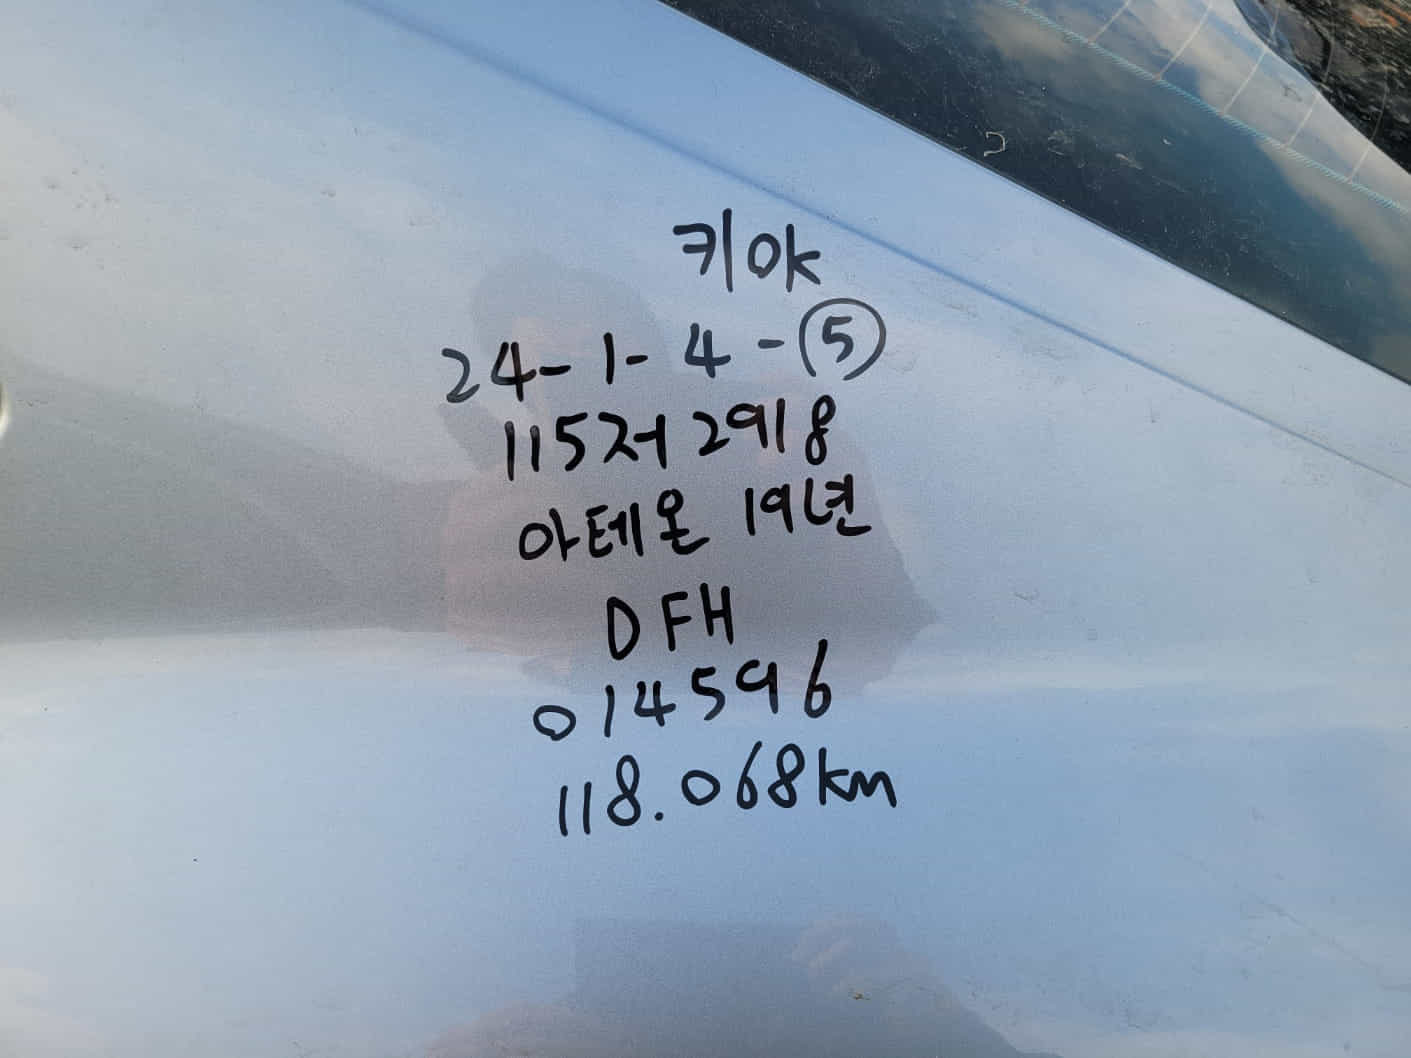 키 ok
24-1-4-⑤
115저2918
아테온 19년
DFH
014596
118.068km